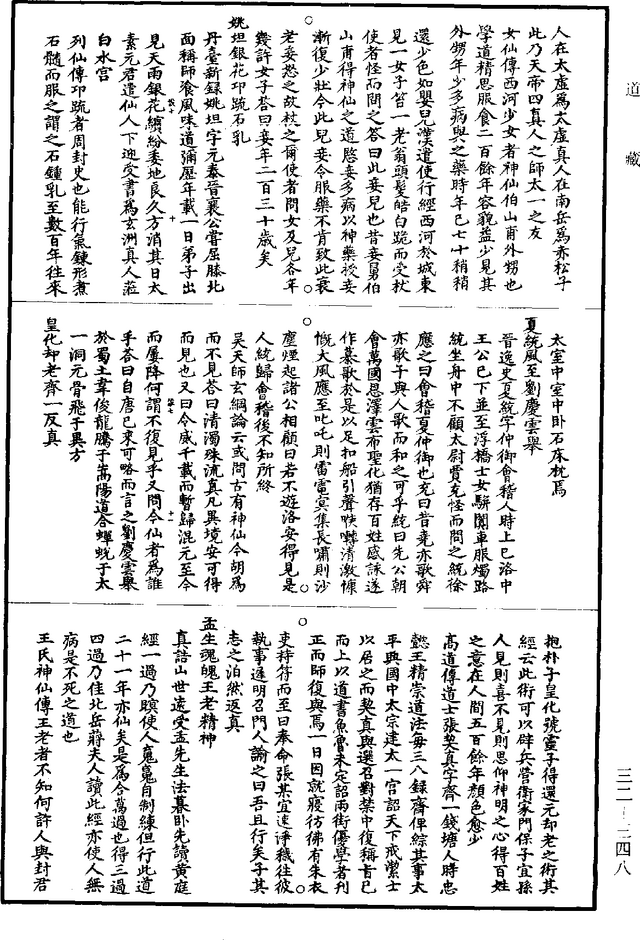 道藏
人在太虛為太虛真人在南岳為赤松子
此乃天帝四真人之師太一之友
女仙傳西河少女者神仙伯山甫外甥也
學道精思服食二百餘年容貌益少見其
外甥年少多病與之藥時年已七十稍稍
還少色如嬰兒漢遣使行經西河於城東
見一女子笞一老翁頭髮皓白跪而受杖
使者怪而問之答曰此妾兒也昔妾舅伯
山甫得神仙之道愍妾多病以神藥授妾
漸復少壯今此兒妾令服藥不肯致此衰
老妾恚之故杖之爾使者問女及兒各年
幾許女子荅曰妾年二百三十歲矣
姚坦銀花卭疏石乳
丹臺新錄姚坦字元泰晉襄公嘗屈膝北
面稱師飡風味道彌歷年載一日弟子出
見天雨銀花繽紛委地良久方消其日太
素元君遣仙人下迎受書為玄洲真人莅
白水宫
列仙傳卭疏者周封史也能行氣鍊形煮
石髓而服之謂之石鍾乳至數百年往來
太室中室中卧石床枕焉
夏統風至劉慶雲舉
晉逸史夏統字仲御會稽人時上巳洛中
王公已下並至浮橋士女駢闐車服燭路
統坐舟中不顧太尉賈充怪而問之統徐
應之曰會稽夏仲御也充曰昔堯亦歌舜
亦歌子與人歌而和之可乎統曰先公朝
會萬國恩澤雲布聖化猶存百姓感詠遂
作慕歌於是以足扣船引聲喉囀清激慷
慨大風應至叱吒則雷電冥集長嘯則沙
塵煙起諸公相顧曰若不遊洛安得見是
人統歸會稽後不知所終
吳天師玄綱論云或問古有神仙今胡為
而不見荅曰清濁殊流真凡異境安可得
而見也又曰令威千載而暫歸混元至今
而屢降何謂不復見乎又問今仙者為誰
手荅曰自唐已來可略而言之劉慶雲舉
於蜀土韋俊龍騰于嵩陽道合蟬蛻于太
一洞元骨飛于異方
皇化却老齊一反真
抱朴子皇化號靈子得還元却老之術其
經云此術可以辟兵營衛家門保子宜孫
人見則喜不見則思仰神明之心得百姓
之意在人間五百餘年顏色愈少
高道傳道士張契真字齊一錢塘人時忠
懿王精崇道法每三八錄齋俾綜其事太
平興國中太宗建太一宫詔天下戒潔士
以居之而契真與選召對禁中復稱旨已
而上以道書魚魯未定詔兩街優學者刊
正而師復與焉一日因就寢彷彿有朱衣
吏持符而至曰奉命張某宜速淨穢往彼
執事遲明召門人諭之曰吾且行矣子其
志之泊然返真
孟生魂魄王老精神
真誥山世遠受孟先生法暮卧先讀黄庭
經一過乃瞑使人魂魄自制練但行此道
二十一年亦仙矣是為合萬過也得三過
四過乃佳北岳蔣夫人讀此經亦使人無
病是不死之道也
王氏神仙傳王老者不知何許人與封君
三二—三四八